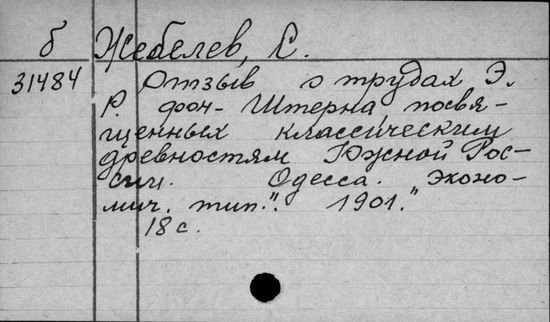 б Жебелев, С.
31484 Отзыв о трудах Э.
Р. фон-Штерна посвя-
щенных классическим
древностям Южной Рос-
сии. Одесса. "Эконо-
мич. тип.". 1901.
18 с.